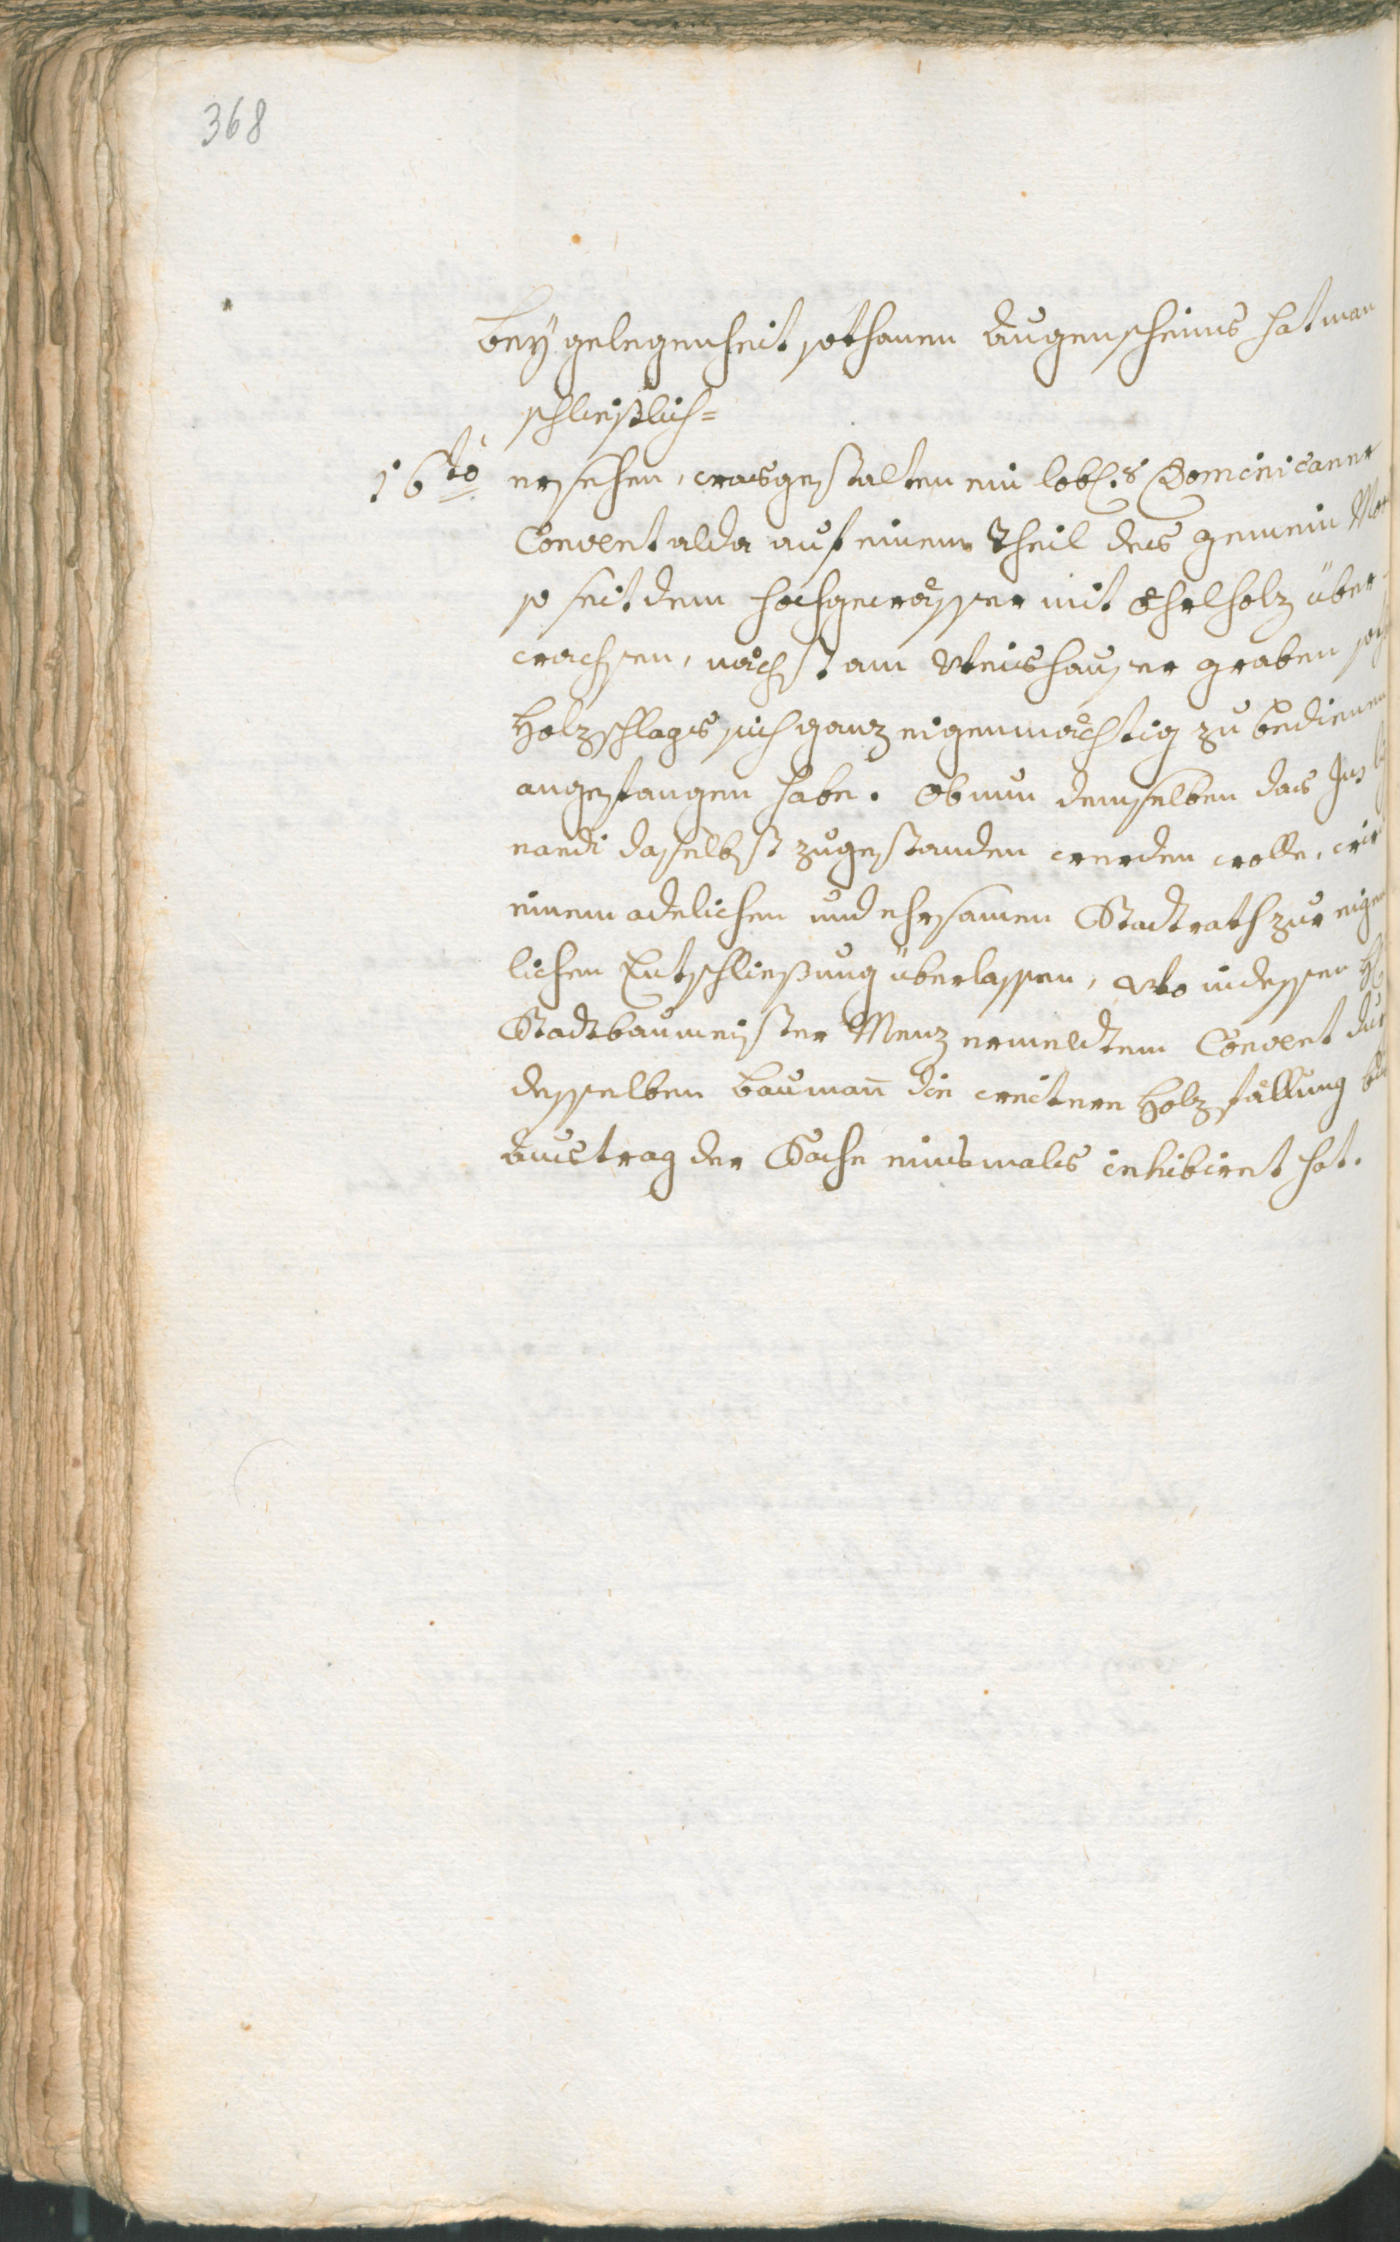 368
Bey gelegenheit sothanen Augenscheins hat man
schließlich=
16to ersehen, wasgestalten ein lobl.s Dominicaner
Convent alda auf einem Theil des gemein
so seit dem hochgewässer mit Ehrlholz über-
wachsen, nächst am Weishauser graben
Holzschlags sich ganz eigenmächtig zu bedienen
angefangen habe. Ob nun demselben das Jus
nandi daselbst zugestanden werden wolle, wird
einem adelichen und ehrsamen Stadtrath zur
lichen Entschließung überlassen, Wo indessen H
Stadtbaumeister Menz ermeldtem Convent
desselben Baumañ die weitere Holzfällung bis
Austrag der Sache einsmales inhibiret hat.